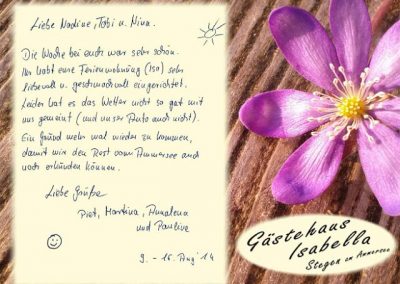 Liebe Nadine, Tobi u. Nina.
Die Woche bei euch war sehr schön.
Ihr habt eure Ferienwohnung (Isa) sehr
liebevoll u. geschmackvoll eingerichtet.
Leider hat es das Wetter nicht so gut mit
uns gemeint (und unser Auto auch nicht).
Ein Grund mehr mal wieder zu kommen,
damit wir den Rest vom Ammersee auch
noch erkunden können.
Liebe Grüße
Piet, Martina, Annalena
und Pauline
9. - 16. Aug '14
Gästehaus
Isabella
Stegen am Ammersee